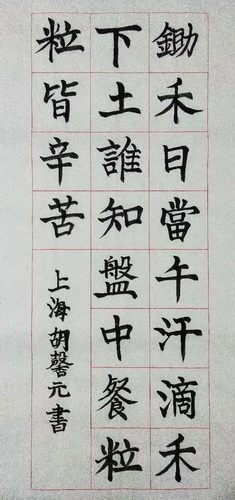 鋤禾日當午汗滴禾
下土誰知盤中餐粒
粒皆辛苦
上海胡馨元書